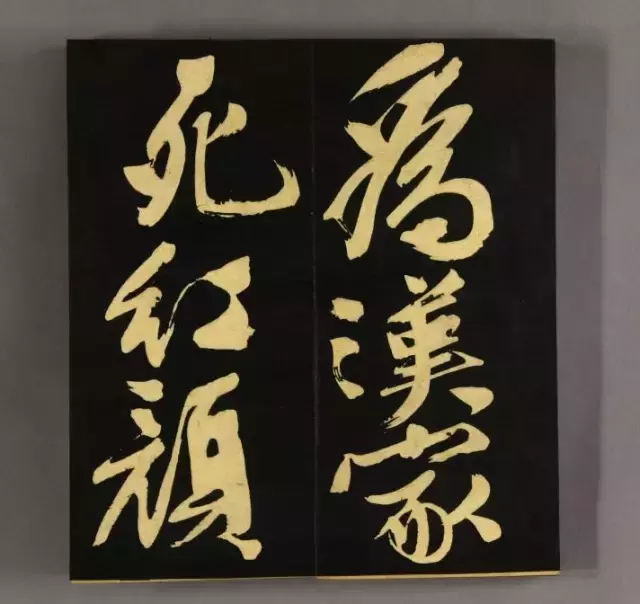 為漢家
死紅顔